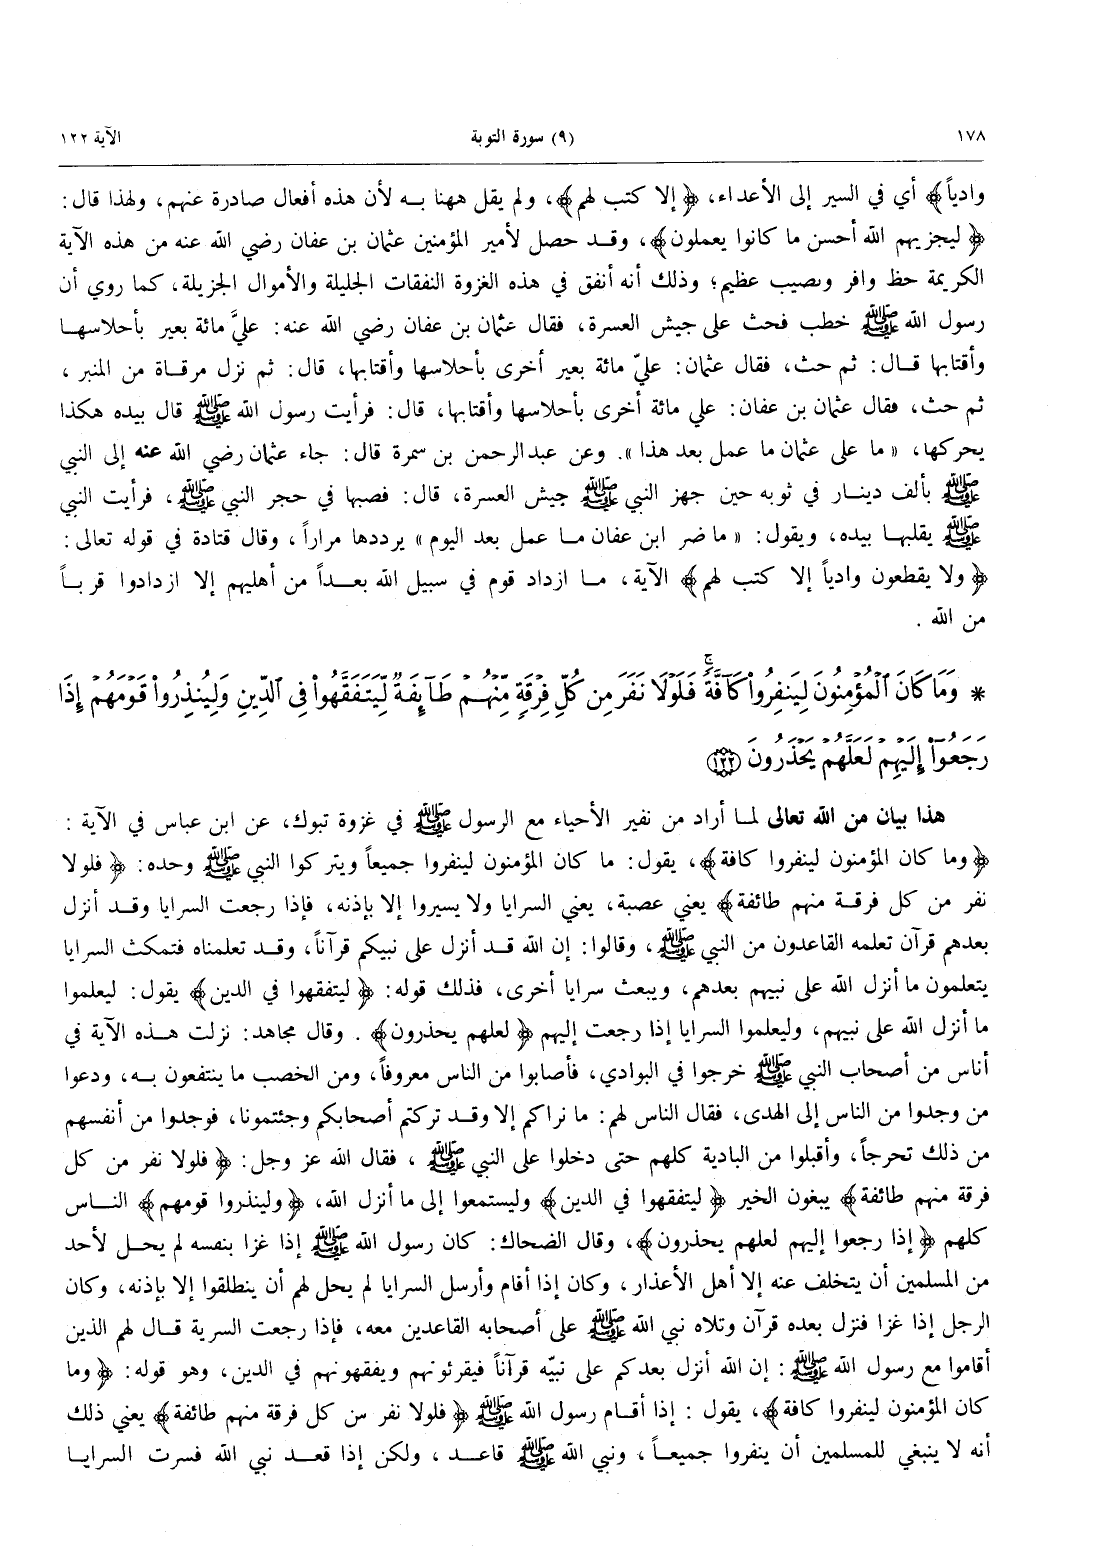 ١٧٨ (٩) سورة التوبة الآية ١٢٢
وادياً﴾ أي في السير إلى الأعداء، ﴿إلا كتب لهم﴾، ولم يقل ههنا بـه لأن هذه أفعال صادرة عنهم، ولهذا قال:
﴿ليجزيهم الله أحسن ما كانوا يعملون﴾، وقـد حصل لأمير المؤمنين عثمان بن عفان رضي الله عنه من هذه الآية
الكريمة حظ وافر ونصيب عظيم؛ وذلك أنه أنفق في هذه الغزوة النفقات الجليلة والأموال الجزيلة، كما روي أن
رسول الله ﷺ خطب فحث على جيش العسرة، فقال عثمان بن عفان رضي الله عنه: عليَّ مائة بعير بأحلاسهـا
وأقتابها قـال: ثم حث، فقال عثمان: عليّ مائة بعير أخرى بأحلاسها وأقتابها، قال: ثم نزل مرقاة من المنبر،
ثم حث، فقال عثمان بن عفان: علي مائة أخرى بأحلاسها وأقتابها، قال: فرأيت رسول الله ﷺ قال بيده هكذا
يحركها، «ما على عثمان ما عمل بعد هذا». وعن عبدالرحمن بن سمرة قال: جاء عثمان رضي الله عنه إلى النبي
ﷺ بألف دينـار في ثوبه حين جهز النبي ﷺ جيش العسرة، قال: فصبها في حجر النبي ﷺ، فرأيت النبي
ﷺ يقلبهـا بيده، ويقول: «ما ضر ابن عفان مـا عمل بعد اليوم» يرددها مراراً، وقال قتادة في قوله تعالى:
﴿ولا يقطعون وادياً إلا كتب لهم﴾ الآية، مـا ازداد قوم في سبيل الله بعـداً من أهليهم إلا ازدادوا قربـاً
من الله.
* وَمَا كَانَ ٱلْمُؤْمِنُونَ لِيَنفِرُوا۟ كَآفَّةً ۚ فَلَوْلَا نَفَرَ مِن كُلِّ فِرْقَةٍ مِّنْهُمْ طَآئِفَةٌ لِّيَتَفَقَّهُوا۟ فِى ٱلدِّينِ وَلِيُنذِرُوا۟ قَوْمَهُمْ إِذَا
رَجَعُوٓا۟ إِلَيْهِمْ لَعَلَّهُمْ يَحْذَرُونَ ١٢٢
هذا بيان من الله تعالى لمـا أراد من نفير الأحياء مع الرسول ﷺ في غزوة تبوك، عن ابن عباس في الآية:
﴿وما كان المؤمنون لينفروا كافة﴾، يقول: ما كان المؤمنون لينفروا جميعاً ويتركوا النبي ﷺ وحده: ﴿فلولا
نفر من كل فرقـة منهم طائفة﴾ يعني عصبة، يعني السرايا ولا يسيروا إلا بإذنه، فإذا رجعت السرايا وقـد أنزل
بعدهم قرآن تعلمه القاعدون من النبي ﷺ، وقالوا: إن الله قـد أنزل على نبيكم قرآناً، وقـد تعلمناه فتمكث السرايا
يتعلمون ما أنزل الله على نبيهم بعدهم، ويبعث سرايا أخرى، فذلك قوله: ﴿ليتفقهوا في الدين﴾ يقول: ليعلموا
ما أنزل الله على نبيهم، وليعلموا السرايا إذا رجعت إليهم ﴿لعلهم يحذرون﴾. وقال مجاهد: نزلت هـذه الآية في
أناس من أصحاب النبي ﷺ خرجوا في البوادي، فأصابوا من الناس معروفاً، ومن الخصب ما ينتفعون بـه، ودعوا
من وجدوا من الناس إلى الهدى، فقال الناس لهم: ما نراكم إلا وقـد تركتم أصحابكم وجئتمونا، فوجدوا من أنفسهم
من ذلك تحرجاً، وأقبلوا من البادية كلهم حتى دخلوا على النبي ﷺ، فقال الله عز وجل: ﴿فلولا نفر من كل
فرقة منهم طائفة﴾ يبغون الخير ﴿ليتفقهوا في الدين﴾ وليستمعوا إلى ما أنزل الله، ﴿ولينذروا قومهم﴾ النـاس
كلهم ﴿إذا رجعوا إليهم لعلهم يحذرون﴾، وقال الضحاك: كان رسول الله ﷺ إذا غزا بنفسه لم يحـل لأحد
من المسلمين أن يتخلف عنه إلا أهل الأعذار، وكان إذا أقام وأرسل السرايا لم يحل لهم أن ينطلقوا إلا بإذنه، وكان
الرجل إذا غزا فنزل بعده قرآن وتلاه نبي الله ﷺ على أصحابه القاعدين معه، فإذا رجعت السرية قـال لهم الذين
أقاموا مع رسول الله ﷺ: إن الله أنزل بعدكم على نبيّه قرآناً فيقرئونهم ويفقهونهم في الدين، وهو قوله: ﴿وما
كان المؤمنون لينفروا كافة﴾، يقول: إذا أقـام رسول الله ﷺ ﴿فلولا نفر من كل فرقة منهم طائفة﴾ يعني ذلك
أنه لا ينبغي للمسلمين أن ينفروا جميعـاً، ونبي الله ﷺ قاعـد، ولكن إذا قعـد نبي الله فسرت السرايـا